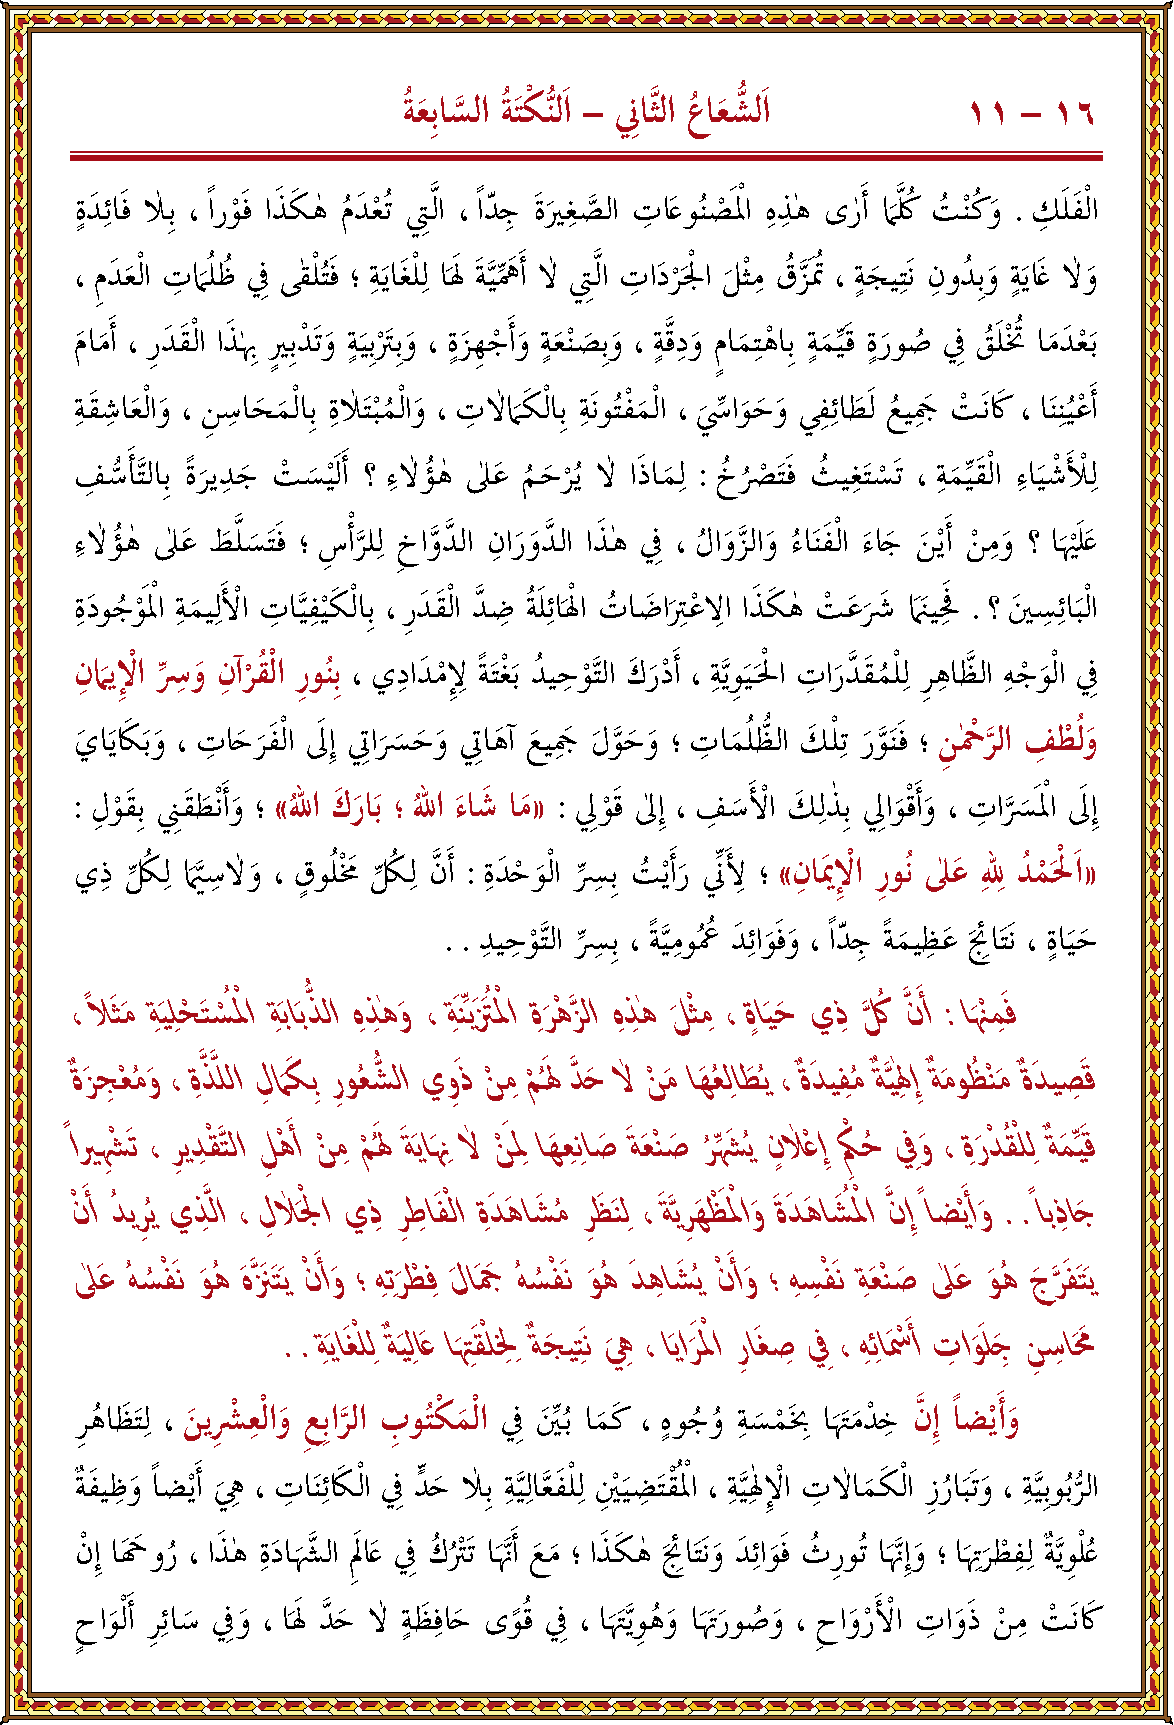 اَلشُّعَاعُ الثَّانِي – اَلنُّكْتَةُ السَّابِعَةُ ١٦ – ١١
الْفَلَكِ . وَكُنْتُ كُلَّمَا أَرٰى هٰذِهِ الْمَصْنُوعَاتِ الصَّغِيرَةَ جِدّاً ، الَّتِي تُعْدَمُ هٰكَذَا فَوْراً ، بِلاٰ فَائِدَةٍ
وَلاٰ غَايَةٍ وَبِدُونِ نَتِيجَةٍ ، تُمَزَّقُ مِثْلَ الْجَرْدَاتِ الَّتِي لاٰ أَهَمِّيَّةَ لَهَا لِلْغَايَةِ ؛ فَتُلْقٰى فِي ظُلُمَاتِ الْعَدَمِ ،
بَعْدَمَا تُخْلَقُ فِي صُورَةٍ قَيِّمَةٍ بِاهْتِمَامٍ وَدِقَّةٍ ، وَبِصَنْعَةٍ وَأَجْهِزَةٍ ، وَبِتَرْبِيَةٍ وَتَدْبِيرٍ بِهٰذَا الْقَدَرِ ، أَمَامَ
أَعْيُنِنَا ، كَانَتْ جَمِيعُ لَطَائِفِي وَحَوَاسِّيَ ، الْمَفْتُونَةِ بِالْكَمَالاٰتِ ، وَالْمُبْتَلاٰةِ بِالْمَحَاسِنِ ، وَالْعَاشِقَةِ
لِلْأَشْيَاءِ الْقَيِّمَةِ ، تَسْتَغِيثُ فَتَصْرُخُ : لِمَاذَا لاٰ يُرْحَمُ عَلٰى هٰؤُلاٰءِ ؟ أَلَيْسَتْ جَدِيرَةً بِالتَّأَسُّفِ
عَلَيْهَا ؟ وَمِنْ أَيْنَ جَاءَ الْفَنَاءُ وَالزَّوَالُ ، فِي هٰذَا الدَّوَرَانِ الدَّوَّاخِ لِلرَّأْسِ ؛ فَتَسَلَّطَ عَلٰى هٰؤُلاٰءِ
الْبَائِسِينَ ؟ . فَحِينَمَا شَرَعَتْ هٰكَذَا الاِعْتِرَاضَاتُ الْهَائِلَةُ ضِدَّ الْقَدَرِ ، بِالْكَيْفِيَّاتِ الْأَلِيمَةِ الْمَوْجُودَةِ
فِي الْوَجْهِ الظَّاهِرِ لِلْمُقَدَّرَاتِ الْحَيَوِيَّةِ ، أَدْرَكَ التَّوْحِيدُ بَغْتَةً لِإِمْدَادِي ، بِنُورِ الْقُرْآنِ وَسِرِّ الْإِيمَانِ
وَلُطْفِ الرَّحْمٰنِ ؛ فَنَوَّرَ تِلْكَ الظُّلُمَاتِ ؛ وَحَوَّلَ جَمِيعَ آهَاتِي وَحَسَرَاتِي إِلَى الْفَرَحَاتِ ، وَبَكَايَايَ
إِلَى الْمَسَرَّاتِ ، وَأَقْوَالِي بِذٰلِكَ الْأَسَفِ ، إِلٰى قَوْلِي : «مَا شَاءَ اللهُ ؛ بَارَكَ اللهُ» ؛ وَأَنْطَقَنِي بِقَوْلِ :
«اَلْحَمْدُ لِلهِ عَلٰى نُورِ الْإِيمَانِ» ؛ لِأَنِّي رَأَيْتُ بِسِرِّ الْوَحْدَةِ : أَنَّ لِكُلِّ مَخْلُوقٍ ، وَلاٰسِيَّمَا لِكُلِّ ذِي
حَيَاةٍ ، نَتَائِجَ عَظِيمَةً جِدّاً ، وَفَوَائِدَ عُمُومِيَّةً ، بِسِرِّ التَّوْحِيدِ . .
فَمِنْهَا : أَنَّ كُلَّ ذِي حَيَاةٍ ، مِثْلَ هٰذِهِ الزَّهْرَةِ الْمُتَزَيِّنَةِ ، وَهٰذِهِ الذُّبَابَةِ الْمُسْتَحْلِيَةِ مَثَلاً ،
قَصِيدَةٌ مَنْظُومَةٌ إِلٰهِيَّةٌ مُفِيدَةٌ ، يُطَالِعُهَا مَنْ لاٰ حَدَّ لَهُمْ مِنْ ذَوِي الشُّعُورِ بِكَمَالِ اللَّذَّةِ ، وَمُعْجِزَةٌ
قَيِّمَةٌ لِلْقُدْرَةِ ، وَفِي حُكْمِ إِعْلاٰنٍ يُشَهِّرُ صَنْعَةَ صَانِعِهَا لِمَنْ لاٰ نِهَايَةَ لَهُمْ مِنْ أَهْلِ التَّقْدِيرِ ، تَشْهِيراً
جَاذِباً . . وَأَيْضاً إِنَّ الْمُشَاهَدَةَ وَالْمَظْهَرِيَّةَ ، لِنَظَرِ مُشَاهَدَةِ الْفَاطِرِ ذِي الْجَلاٰلِ ، الَّذِي يُرِيدُ أَنْ
يَتَفَرَّجَ هُوَ عَلٰى صَنْعَةِ نَفْسِهِ ؛ وَأَنْ يُشَاهِدَ هُوَ نَفْسُهُ جَمَالَ فِطْرَتِهِ ؛ وَأَنْ يَتَنَزَّهَ هُوَ نَفْسُهُ عَلٰى
مَحَاسِنِ جِلَوَاتِ أَسْمَائِهِ ، فِي صِغَارِ الْمَرَايَا ، هِيَ نَتِيجَةٌ لِخِلْقَتِهَا عَالِيَةٌ لِلْغَايَةِ . .
وَأَيْضاً إِنَّ خِدْمَتَهَا بِخَمْسَةِ وُجُوهٍ ، كَمَا بُيِّنَ فِي الْمَكْتُوبِ الرَّابِعِ وَالْعِشْرِينَ ، لِتَظَاهُرِ
الرُّبُوبِيَّةِ ، وَتَبَارُزِ الْكَمَالاٰتِ الْإِلٰهِيَّةِ ، الْمُقْتَضِيَيْنِ لِلْفَعَّالِيَّةِ بِلاٰ حَدٍّ فِي الْكَائِنَاتِ ، هِيَ أَيْضاً وَظِيفَةٌ
عُلْوِيَّةٌ لِفِطْرَتِهَا ؛ وَإِنَّهَا تُورِثُ فَوَائِدَ وَنَتَائِجَ هٰكَذَا ؛ مَعَ أَنَّهَا تَتْرُكُ فِي عَالَمِ الشَّهَادَةِ هٰذَا ، رُوحَهَا إِنْ
كَانَتْ مِنْ ذَوَاتِ الْأَرْوَاحِ ، وَصُورَتَهَا وَهُوِيَّتَهَا ، فِي قُوًى حَافِظَةٍ لاٰ حَدَّ لَهَا ، وَفِي سَائِرِ أَلْوَاحٍ